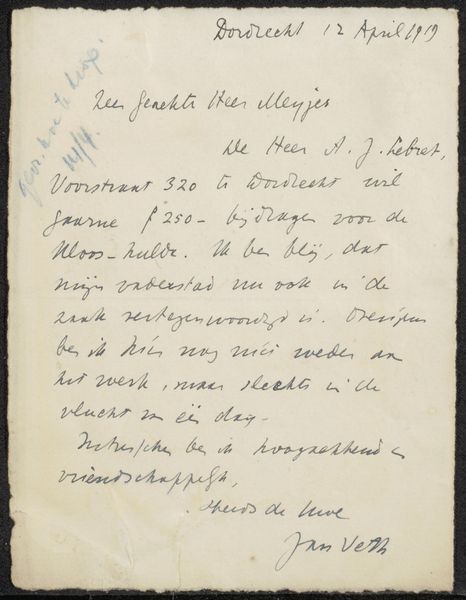 Dordrecht 12 April 1919
Zeer geachte Heer Meyjes
De Heer A. J. Lebret,
Voorstraat 320 te Dordrecht wil
gaarne ƒ 250 - bijdragen voor de
Kloos-hulde. Ik ben blij, dat
mijn vaderstad nu ook in de
zaak vertegenwoordigd is. Overigens
ben ik hier nog niet weder aan
het werk, maar slechts in de
vlucht van één dag -
Intusschen ben ik hoogachtend en
vriendschappelijk,
steeds de Uwe
Jan Veth
14/4.